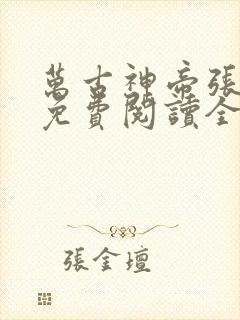 萬古神帝張
免費閱讀全
張金壇